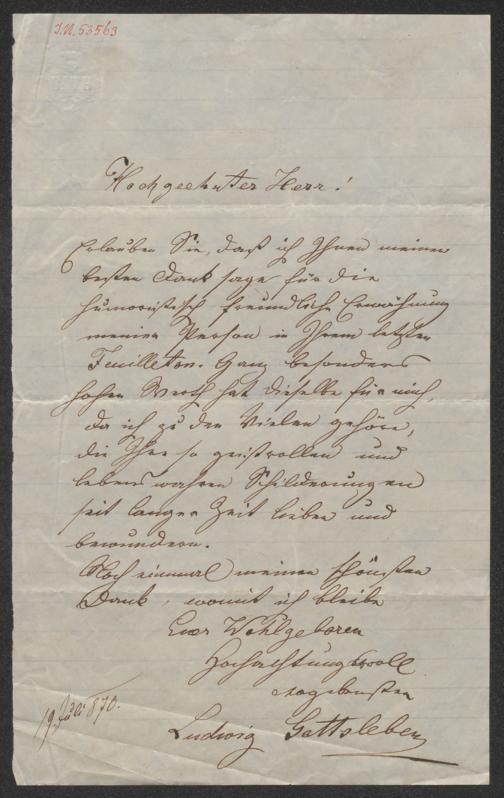 J.N. 53563
Hochgeehrter Herr!
Erlauben Sie, daß ich Ihnen meinen
besten Dank sage für die
humoristisch freundliche Erwähnung
meiner Person in Ihrem letzten
Feuilleton. Ganz besonders
hohen Werth hat dieselbe für mich,
da ich zu den Vielen gehöre,
die Ihre so geistvollen und
lebenswahren Schilderungen
seit langer Zeit lieben und
bewundern.
Noch einmal meinen schönsten
Dank, womit ich bleibe
Euer Wohlgeboren
Hochachtungsvoll
ergebenster
Ludwig Gottsleben
19. Juli 870.